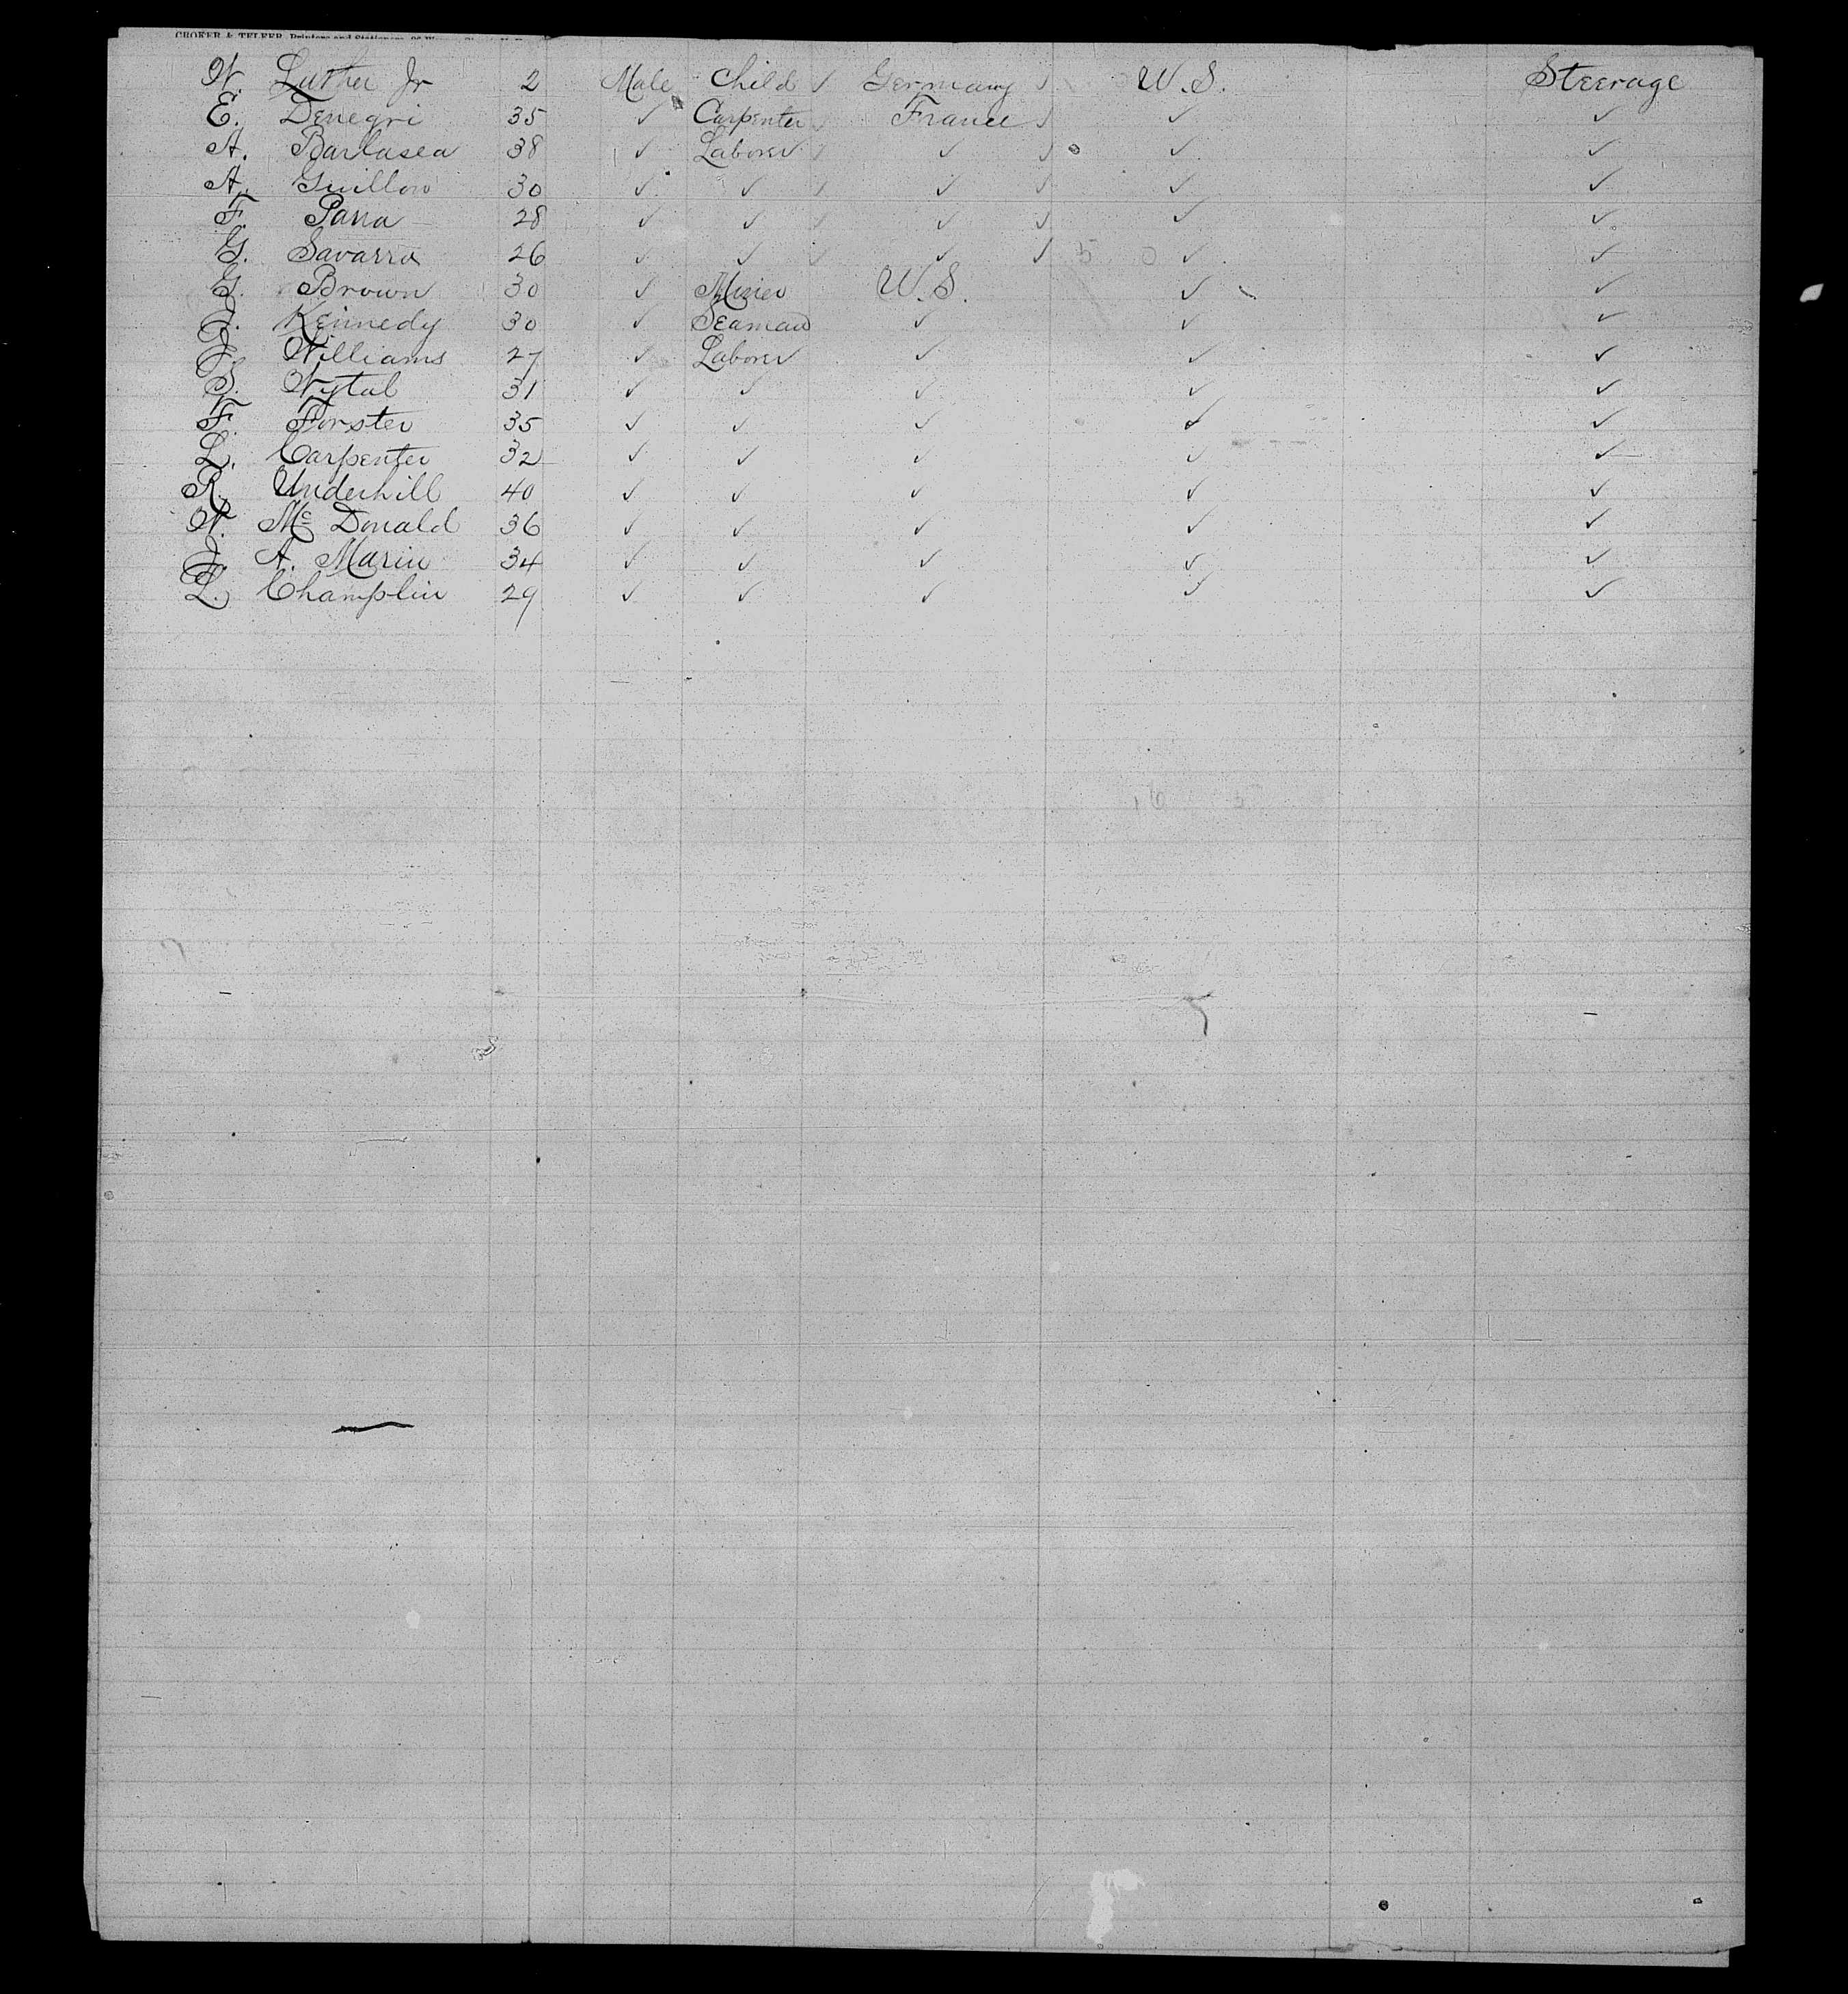 CROKER & TELFER, Printers and Stationers,
W. Luther Jr 2 Male Child ✓ Germany ✓ U.S. Steerage
E. Denegri 35 ✓ Carpenter ✓ France ✓ ✓ ✓
A. Barlasea 38 ✓ Laborer ✓ ✓ ✓ ✓ ✓
A. Guillow 30 ✓ ✓ ✓ ✓ ✓ ✓ ✓
F. Pana 28 ✓ ✓ ✓ ✓ ✓ ✓ ✓
G. Savarra 26 ✓ ✓ ✓ ✓ ✓ 5 0 ✓ ✓
G. Brown 30 ✓ Miner U.S. ✓ ✓
J. Kennedy 30 ✓ Seaman ✓ ✓ ✓
J. Williams 27 ✓ Laborer ✓ ✓ ✓
S. Wytal 31 ✓ ✓ ✓ ✓ ✓
F. Forster 35 ✓ ✓ ✓ ✓ ✓
L. Carpenter 32 ✓ ✓ ✓ ✓ ✓
R. Underhill 40 ✓ ✓ ✓ ✓ ✓
W. Mc Donald 36 ✓ ✓ ✓ ✓ ✓
J. A. Marin 34 ✓ ✓ ✓ ✓ ✓
L. Champlin 29 ✓ ✓ ✓ ✓ ✓